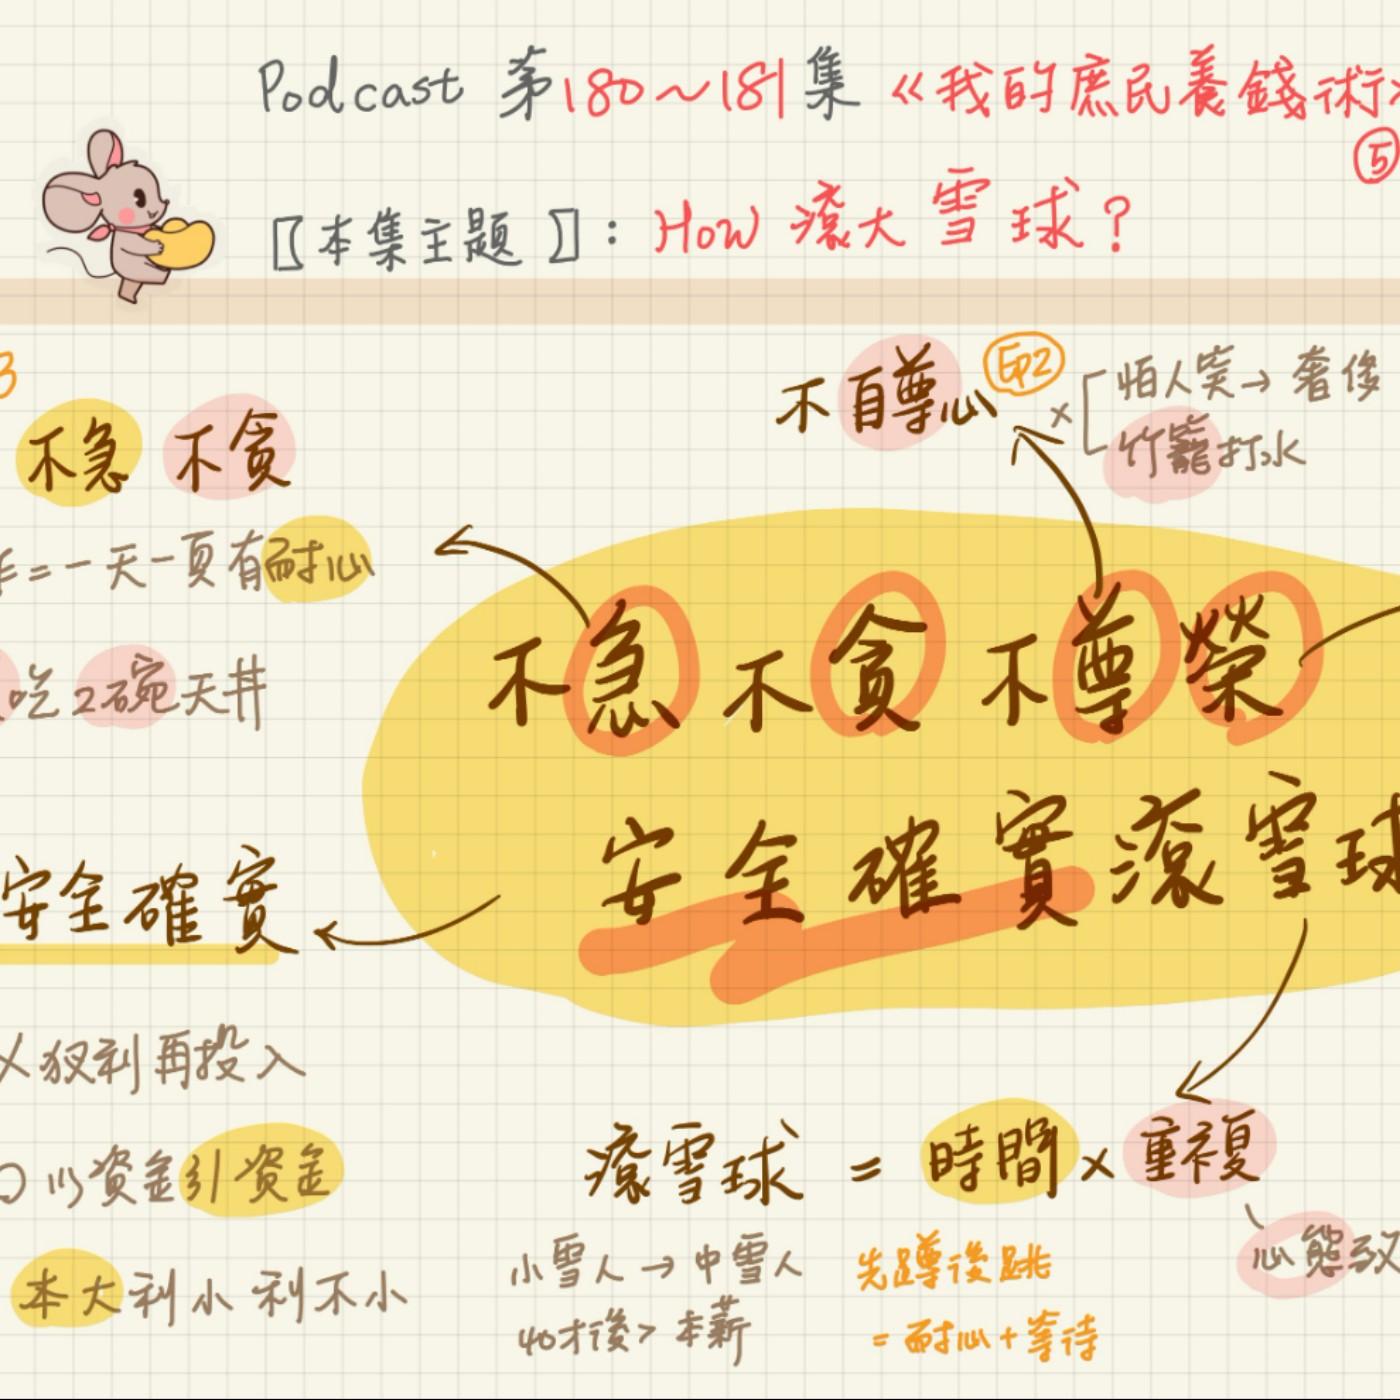 Podcast 第180~181集《我的庶民養錢術》
⑤
〖本集主題〗: How 滾大雪球?
3
不急 不貪
=一天一頁有耐心
吃2碗天井
不自尊心 EP2
× 怕人笑→奢侈
竹籠打水
不急不貪不尊榮
安全確實滾雪球
安全確實
獲利再投入
以資金引資金
本大利小利不小
滾雪球 = 時間 × 重複
心態致
小雪人→中雪人
40才後>本薪
先蹲後跳
=耐心+等待